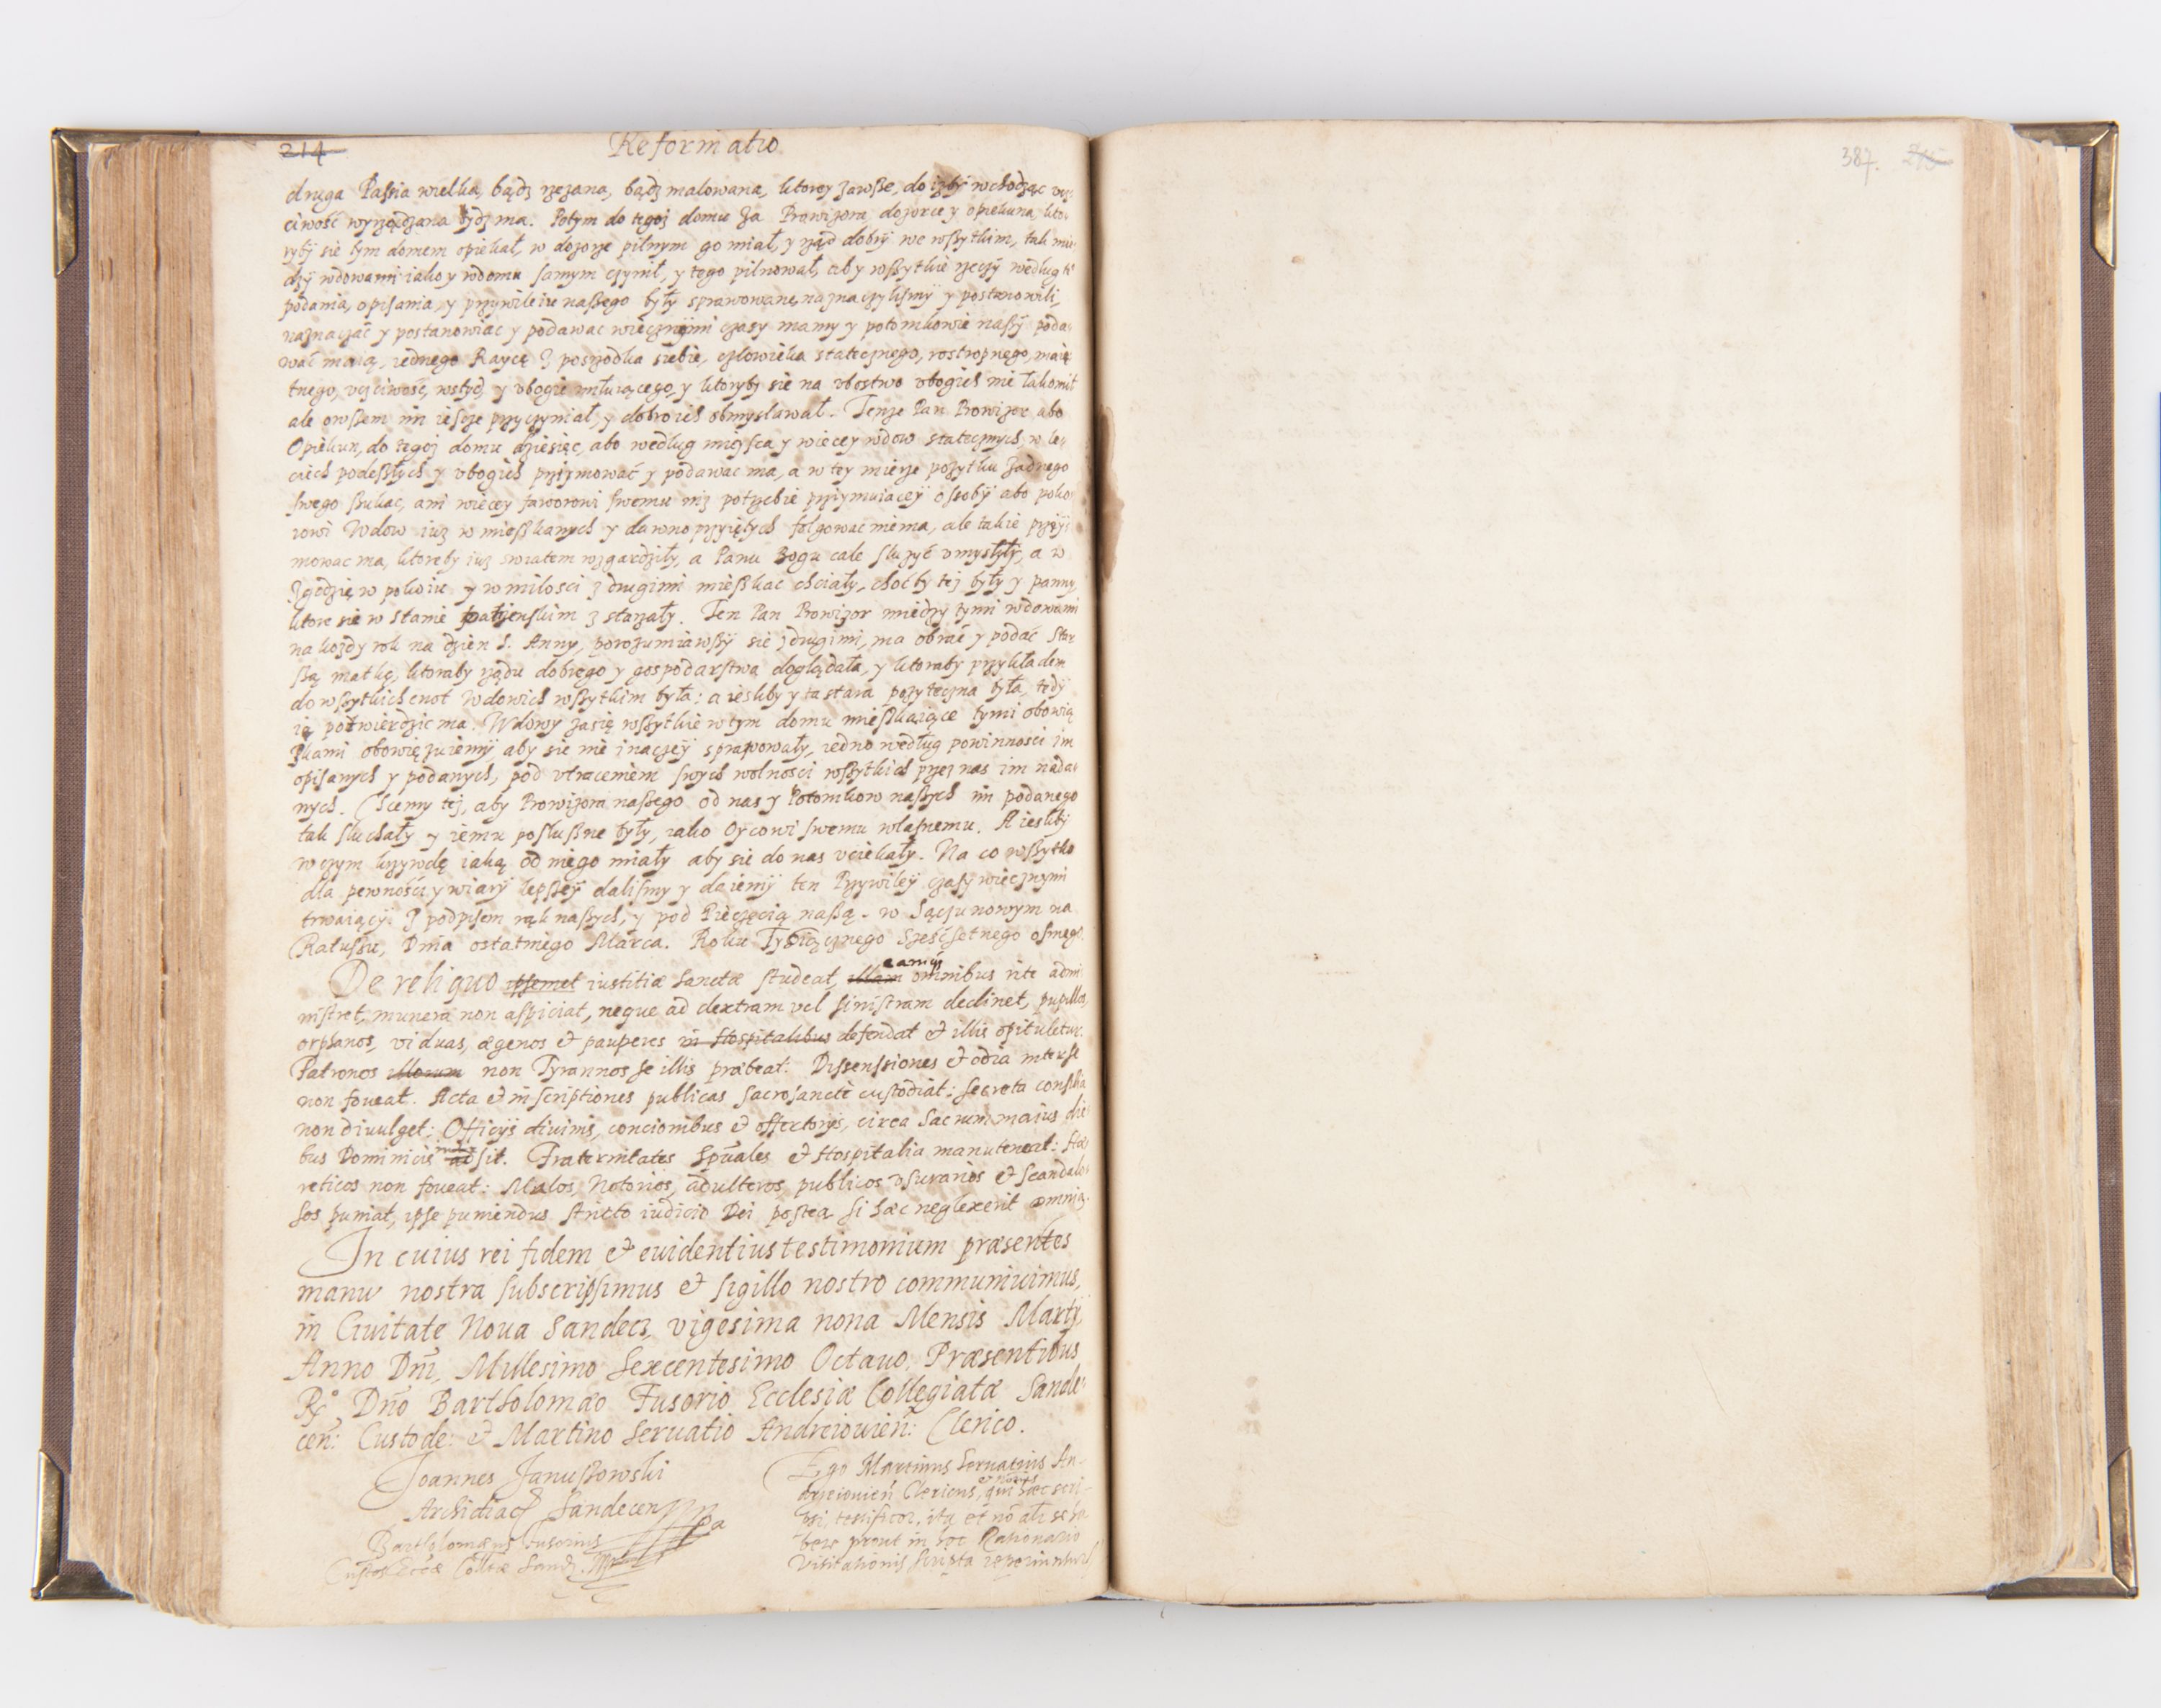 214
Reformatio
druga Paßia wielka, bądz rzezana, bądz malowana, ktorey zawße, do izby wchodząc vcz
ciwość wyrządzana bydz ma. Potym do tegoz domu za Prowizora dozorce y opiekuna, kto
ryby sie tym domem opiekał, w dozorze pilnym go miał, y rząd dobrÿ we wßytkim, tak mie
dzy wdowami iako y w domu samym czynił, y tego pilnował, aby wßytkie rzeczÿ według
podania, opisania, y przywileiu naßego były sprawowane, naznaczylismÿ y postanowili,
naznaczać y postanowiac y podawac wiecznÿmi czasy mamy y potomkowie naßÿ poda
wać maią, iednego Raycę z poszrodka siebie, człowieka statecznego, rostropnego, maię
tnego, vczciwość, wstyd y vbogie miłuiącego, y ktoryby sie na vbostwo vbogich nie łakomił
ale owßem im ieszcze przyczyniał, y dobro ich obmyslawał. Tenze Pan Prowizor abo
Opiekun, do tegoz domu dziesięc, abo według mieysca y wiecey wdow statecznych w le
ciech podeßłych y vbogich przyimować y podawac ma, a w tey mierze pozytku zadnego
swego ßukac, ani wiecey faworowi swemu niz potrzebie przyimuiącey osobÿ abo poko
iowi Wdow iuz w mießkanych y dawno przyiętych folgowac nie ma, ale takie przyi
mowac ma, ktoreby iuz swiatem wzgardziły, a Panu Bogu cale sluzyć vmysłyły, a w
Zgodzie w pokoiu y w milosci z drugimi mießkac chciały, choćby tez były y panny,
ktore sie w stanie panienskim z starzały. Ten Pan Prowizor miedzy tymi wdowami
na kozdy rok na dzien S. Anny, porozumiawßy sie z drugimi, ma obrać y podać Star
ßą matkę, ktoraby rządu dobrego y gospodarstwa doglądała, y ktoraby przykładem
do wßytkich cnot Wdowich wßytkim była: a iesliby y ta stara pozyteczna była, tedy
ią potwierdzic ma. Wdowy zasię wßytkie w tym domu mießkaiące tymi obowią
zkami obowięzuiemy, aby sie nie inaczeÿ sprawowały, iedno według powinnosci im
opisanych y podanych, pod vtraceniem swych wolnosci wßytkich przez nas im nada
nych. Chcemy tez, aby Prowizora naßego od nas y Potomkow naßych im podanego
tak sluchały y iemu posłußne były, iako Oycowi swemu własnemu. A iesliby
w czym krzywdę iaką od niego miały aby sie do nas vciekały. Na co wßytko
dla pewności y wiary lepßeÿ dalismy y daiemy ten Przywileÿ czasy wiecznymi
trwaiącÿ. Z podpisem rąk naßych, y pod Pieczęcią naßą. w Sączu nowym na
Ratußu, Dnia ostatniego Marca. Roku Tysiącznego Szescsetnego osmego.
De reliquo ipsemet iustitiæ sanctæ studeat, illam eamq; omnibus rite admi
nistret, munera non aspiciat, neque ad dextram vel sinistram declinet, pupillos,
orphanos, viduas, ægenos et pauperes in Hospitalibus defendat et illis opituletur.
Patronos illorum non Tyrannos se illis præbeat. Dissensiones et odia inter se
non foueat. Acta et inscriptiones publicas sacrosancte custodiat: secreta consilia
non diuulget: Officijs diuinis, concionibus et offertorijs, circa Sacrum maius die
bus Dominicis adsit. Fraternitates Spũales et Hospitalia manuteneat: Hæ
reticos non foueat: Malos, Notorios, adulteros, publicos vsurarios et scandalo
sos puniat, ipse puniendus stricto iudicio Dei postea si hæc neglexerit omnia.
In cuius rei fidem et euidentius testimonium præsentes
manu nostra subscripsimus et sigillo nostro communiuimus,
in Ciuitate Noua Sandecz, vigesima nona Mensis Martij,
Anno Dñi, Millesimo Sexcentesimo Octauo, Præsentibus
Rº. Dño Bartholomæo Fusorio Ecclesiæ Collegiatæ Sande
ceñ: Custode: et Martino Seruatio Andreiouieñ: Clerico.
Joannes Janußowski
Archidiac Sandecen
Bartholomæus Fusorius
Custos Eccæ Colltæ Sand.
Ego Martinus Seruatius An-
dreiouieñ Clericus, qui hæc scri-
psi, testificor, ita et nõ alr se ha
bere prout in hoc Rationario
Visitationis scripta reperiuntur
387.